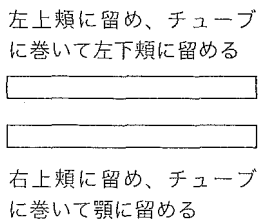 左上頬に留め、チューブ
に巻いて左下頬に留める
右上頬に留め、チューブ
に巻いて顎に留める